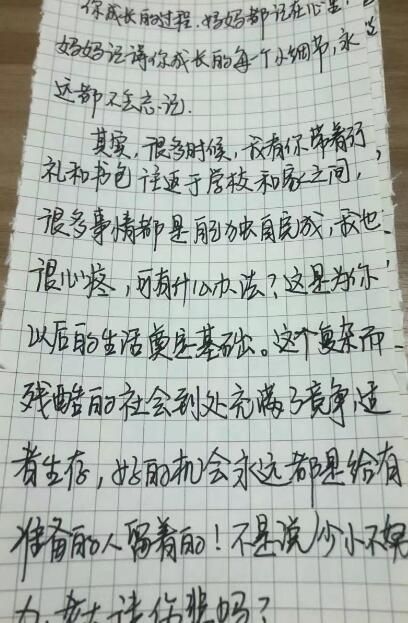 你成长的过程，妈妈都记在心里，
妈妈记请你成长的每一个小细节，永
远都不会忘记.
其实，很多时候，我看你带着行
礼和书包往返于学校和家之间，
很多事情都是自己独自完成，我也
很心疼，可有什么办法？这是为你
以后的生活奠定基础。这个复杂而
残酷的社会到处充满了竞争，适
者生存，好的机会永远都是给有
准备的人留着的！不是说少小不努
力，老大徒伤悲吗？